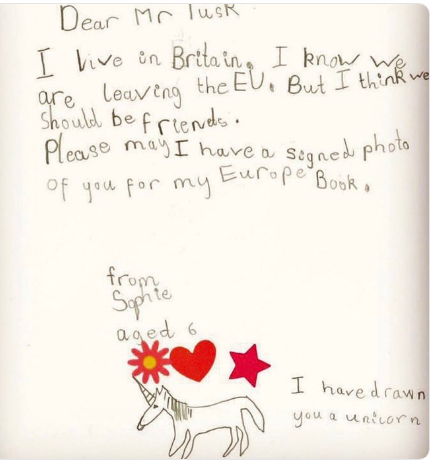 Dear Mr Tusk
I live in Britain. I know we
are leaving the EU. But I think we
should be friends.
Please may I have a signed photo
of you for my Europe Book.
from
Sophie
aged 6
I have drawn
you a unicorn